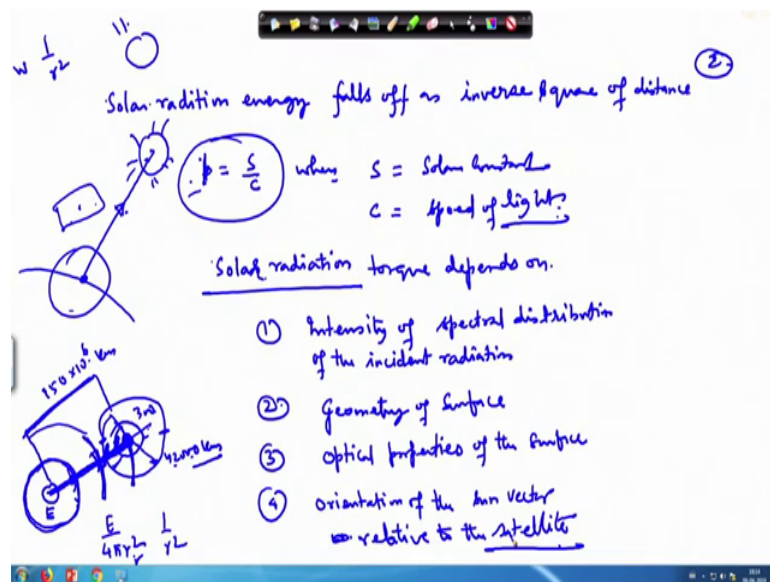 w 1/r²
11.
②.
Solar radition energy falls off as inverse square of distance
p = S/C where S = Solar Constant
C = speed of light.
Solar radiation torque depends on.
① Intensity of spectral distribution
of the incident radiation
② Geometry of Surface
③ optical properties of the surface
④ orientation of the sun vector
relative to the satellite
150×10⁶ km
300
42000 km
E
E/4πr² 1/r²